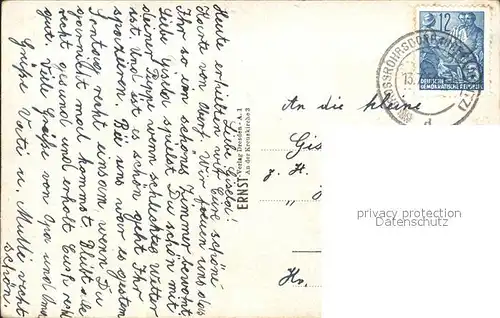 Liebe Gisela!
Heute erhielten wir Eure schöne
Karte von dort. Wir freuen uns das
Ihr so ein schönes Zimmer bewohnt
Liebe Gisela spielst Du schön mit
deiner Puppe wenn schlechtes Wetter
ist. Und ist es schön geht Ihr
spazieren. Bei uns war es gestern
Sonntag recht einsam wenn Du
mal kommst. Bleibt alle
recht gesund und erholt Euch recht
gut. Viele Grüße von Opa und Oma
Grüße Vati u. Mutti recht
schön.
ERNST Verlag Dresden-A. 1
An der Kreuzkirche 3
12
DEUTSCHE
DEMOKRATISCHE REPUBLIK
GROSSRÖHRSDORF
13.
d
An die kleine
Gis
z. H.
Hs.
privacy protection
Datenschutz